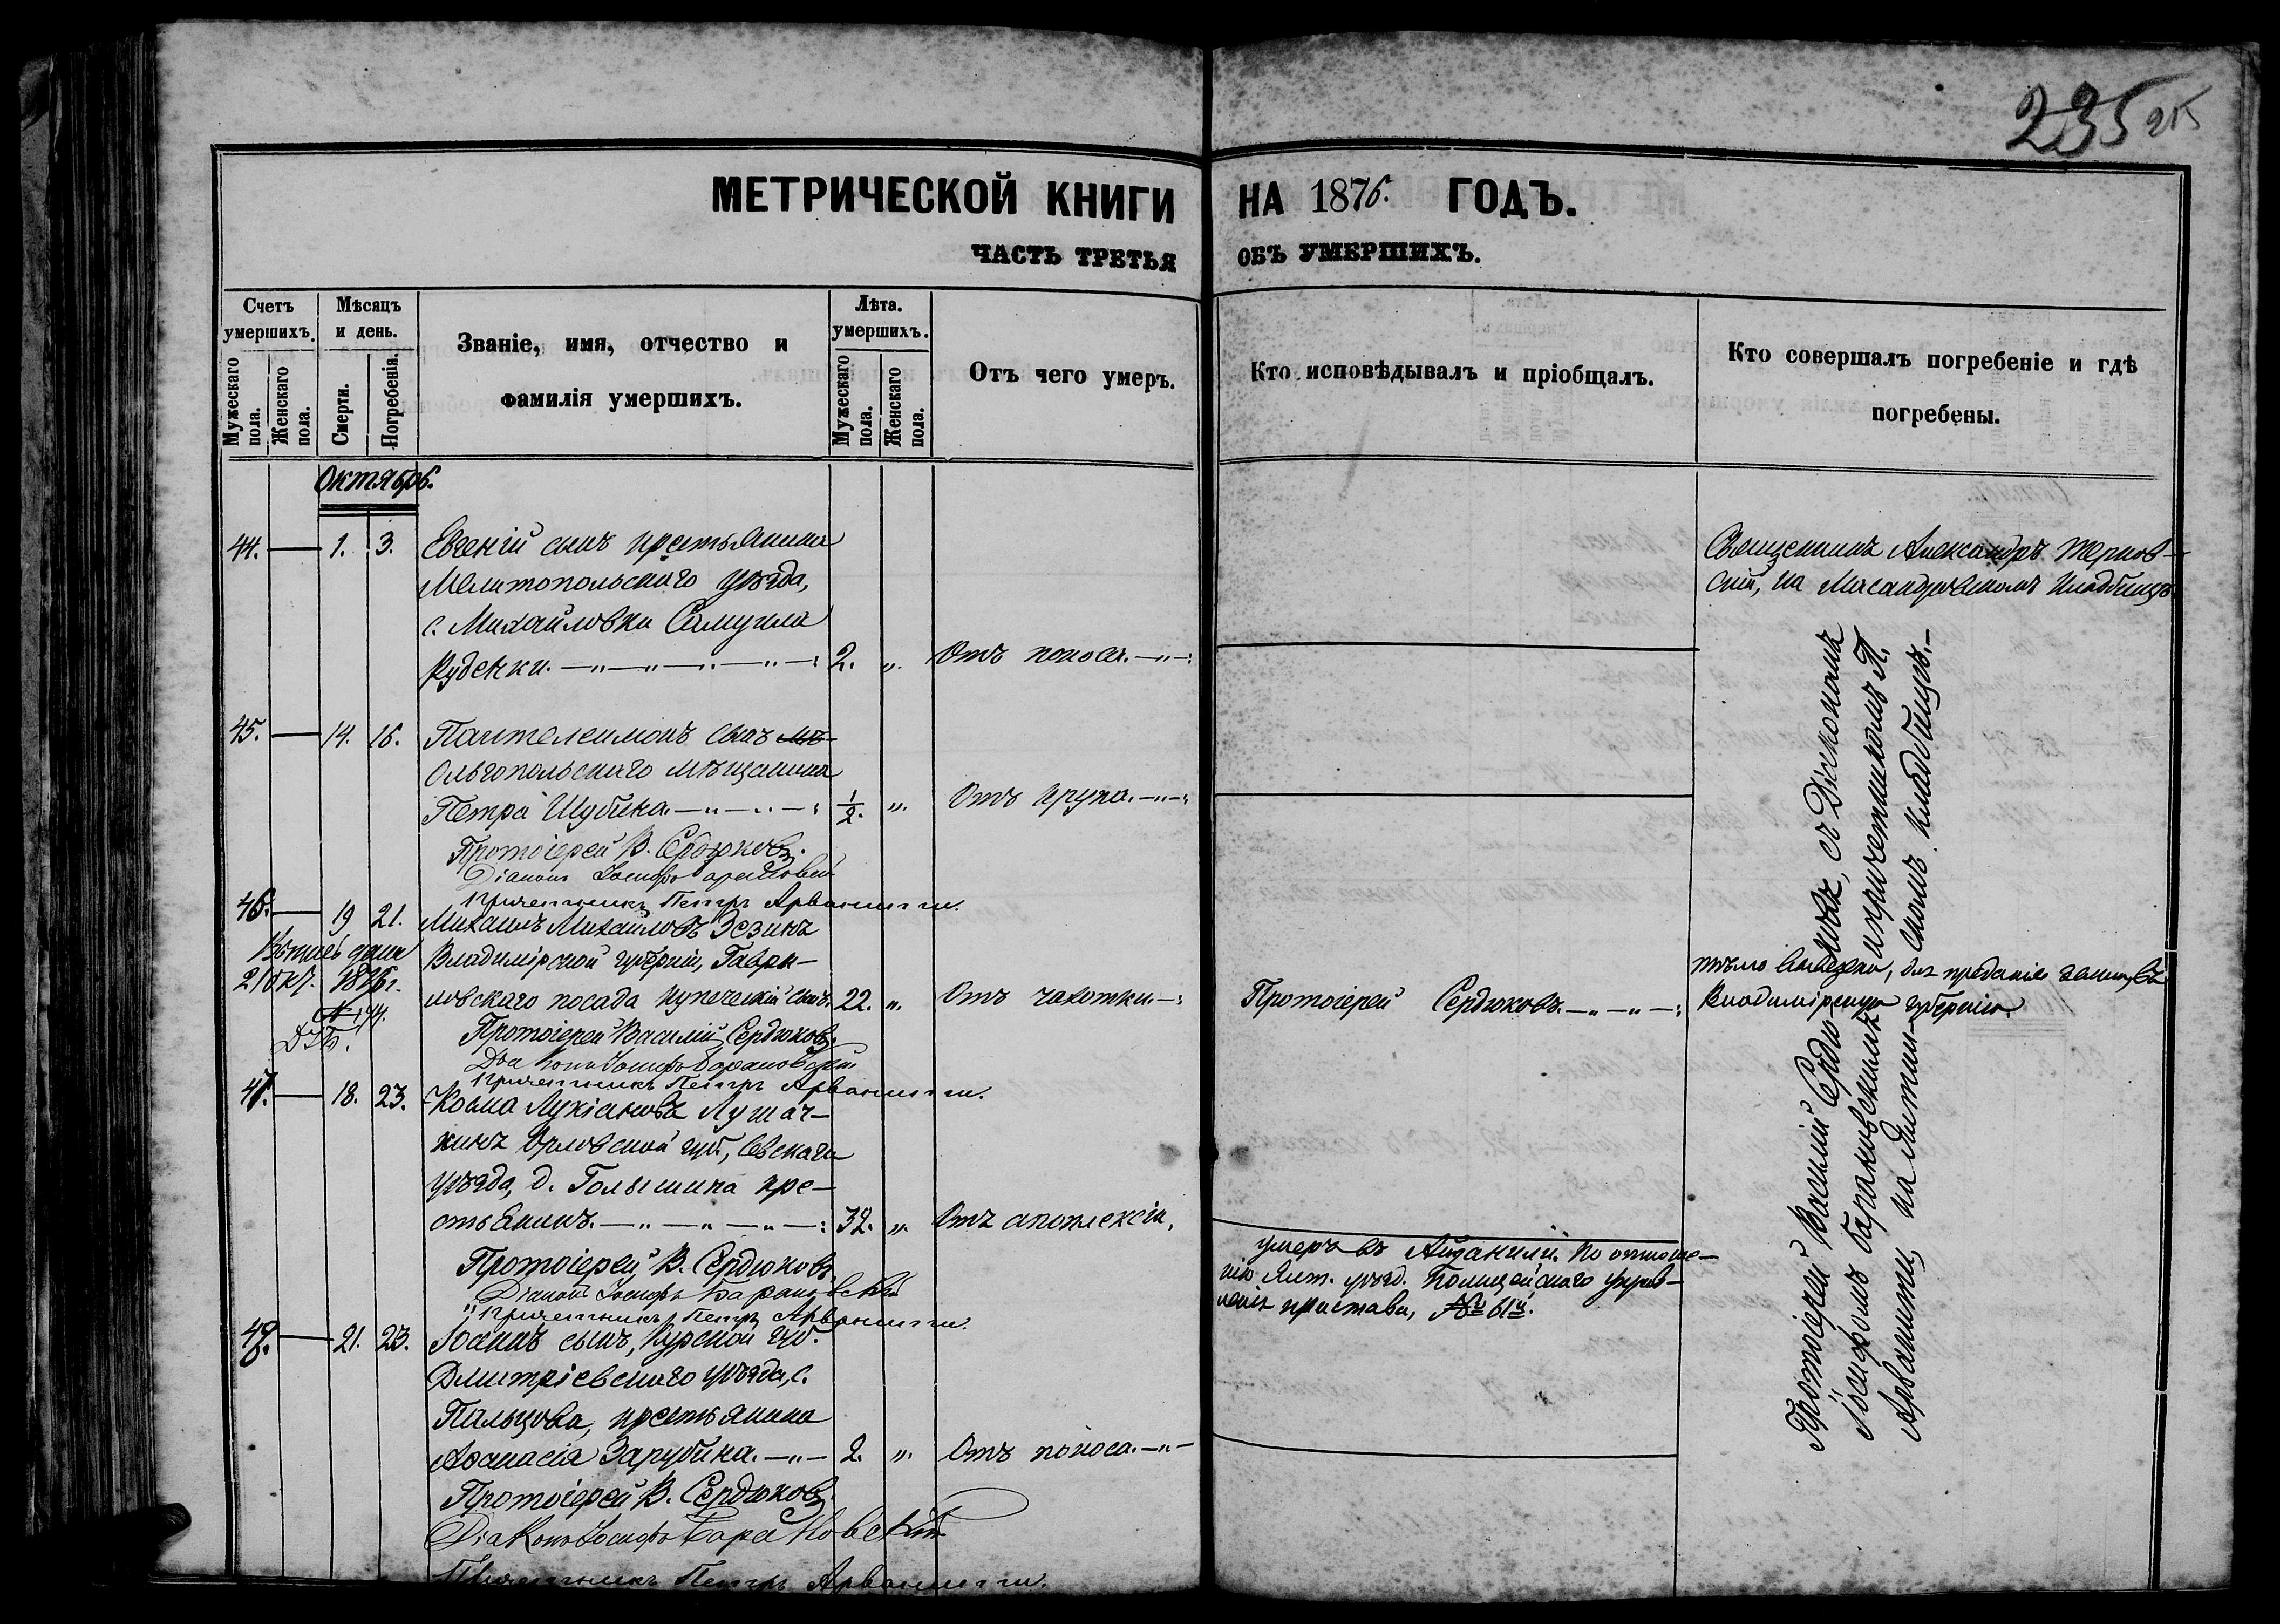 235 215
МЕТРИЧЕСКОЙ КНИГИ НА 1876. ГОДЪ.
ЧАСТЬ ТРЕТЬЯ ОБЪ УМЕРШИХЪ.
Счетъ умершихъ.
Мужескаго пола.
Женскаго пола.
Мѣсяцъ и день.
Смерти.
Погребенія.
Званіе, имя, отчество и
фамилія умершихъ.
Лѣта. умершихъ.
Мужескаго пола.
Женскаго пола.
Отъ чего умеръ.
Кто исповѣдывалъ и пріобщалъ.
Кто совершалъ погребеніе и гдѣ
погребены.
Октябрь.
44. — 1. 3. Евгеній сынъ крестьянина
Мелитопольскаго уѣзда,
с. Михайловки Самуила
Руденки. 2. „ Отъ поноса.
Священникъ Александръ Тернов-
скій, на Масандровскомъ кладбищѣ.
45. — 14. 16. Пантелеимонъ сынъ мѣ-
Ольгопольскаго мѣщанина
Петра Шубика. 1/2. „ Отъ крупа.
Протоіерей В. Сердюковъ.
Діаконъ Іосифъ Барановскій
Причетникъ Петръ Арваниты.
46. — 19 21. Михаилъ Михайловъ Зезинъ
Владимірской губерніи, Гаври-
ловскаго посада купеческій сынъ. 22. „ Отъ чахотки.
21 окт. 1876 г.
№ 174.
Протоіерей Сердюковъ.
тѣло вывезено, для преданія землѣ, въ
Владимірскую губернію.
Протоіерей Василій Сердюковъ.
Діаконъ Іосифъ Барановскій
Причетникъ Петръ Арваниты.
47. — 18. 23. Косма Лукіановъ Лушач-
кинъ Орловской губ., Севскаго
уѣзда, д. Голышина кре-
стьянинъ. 32. „ Отъ апоплексіи.
умеръ въ Айданили. По отноше-
нію Ялт. уѣзд. Полицейскаго управ-
ленія пристава, № 61й.
Протоіерей В. Сердюковъ
Діаконъ Іосифъ Барановскій
Причетникъ Петръ Арваниты.
48. — 21. 23. Іоаннъ сынъ, Курской губ.
Дмитріевскаго уѣзда, с.
Пальцова, крестьянина
Аѳанасія Зарубина. 2. „ Отъ поноса.
Протоіерей В. Сердюковъ.
Діаконъ Іосифъ Барановскій
Причетникъ Петръ Арваниты.
Протоіерей Василій Сердюковъ, съ Діакономъ
Іосифомъ Барановскимъ и причетникомъ П.
Арваниты, на Ялтинскомъ кладбищѣ.